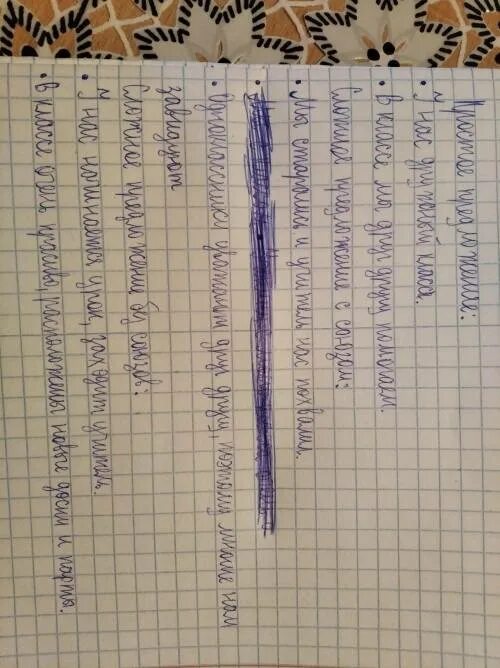 Простое предложение:
• У нас дружный класс.
• В классе мы друг другу помогаем.
Сложные предложение с союзом:
• Мы старались и учитель нас похвалил.
•
• Одноклассники уважают друг друга, поэтому многие нам
завидуют
Сложное предложение без союзов:
• У нас начинается урок, заходит учитель.
• В классе очень красиво, расположены новые доски и парты.